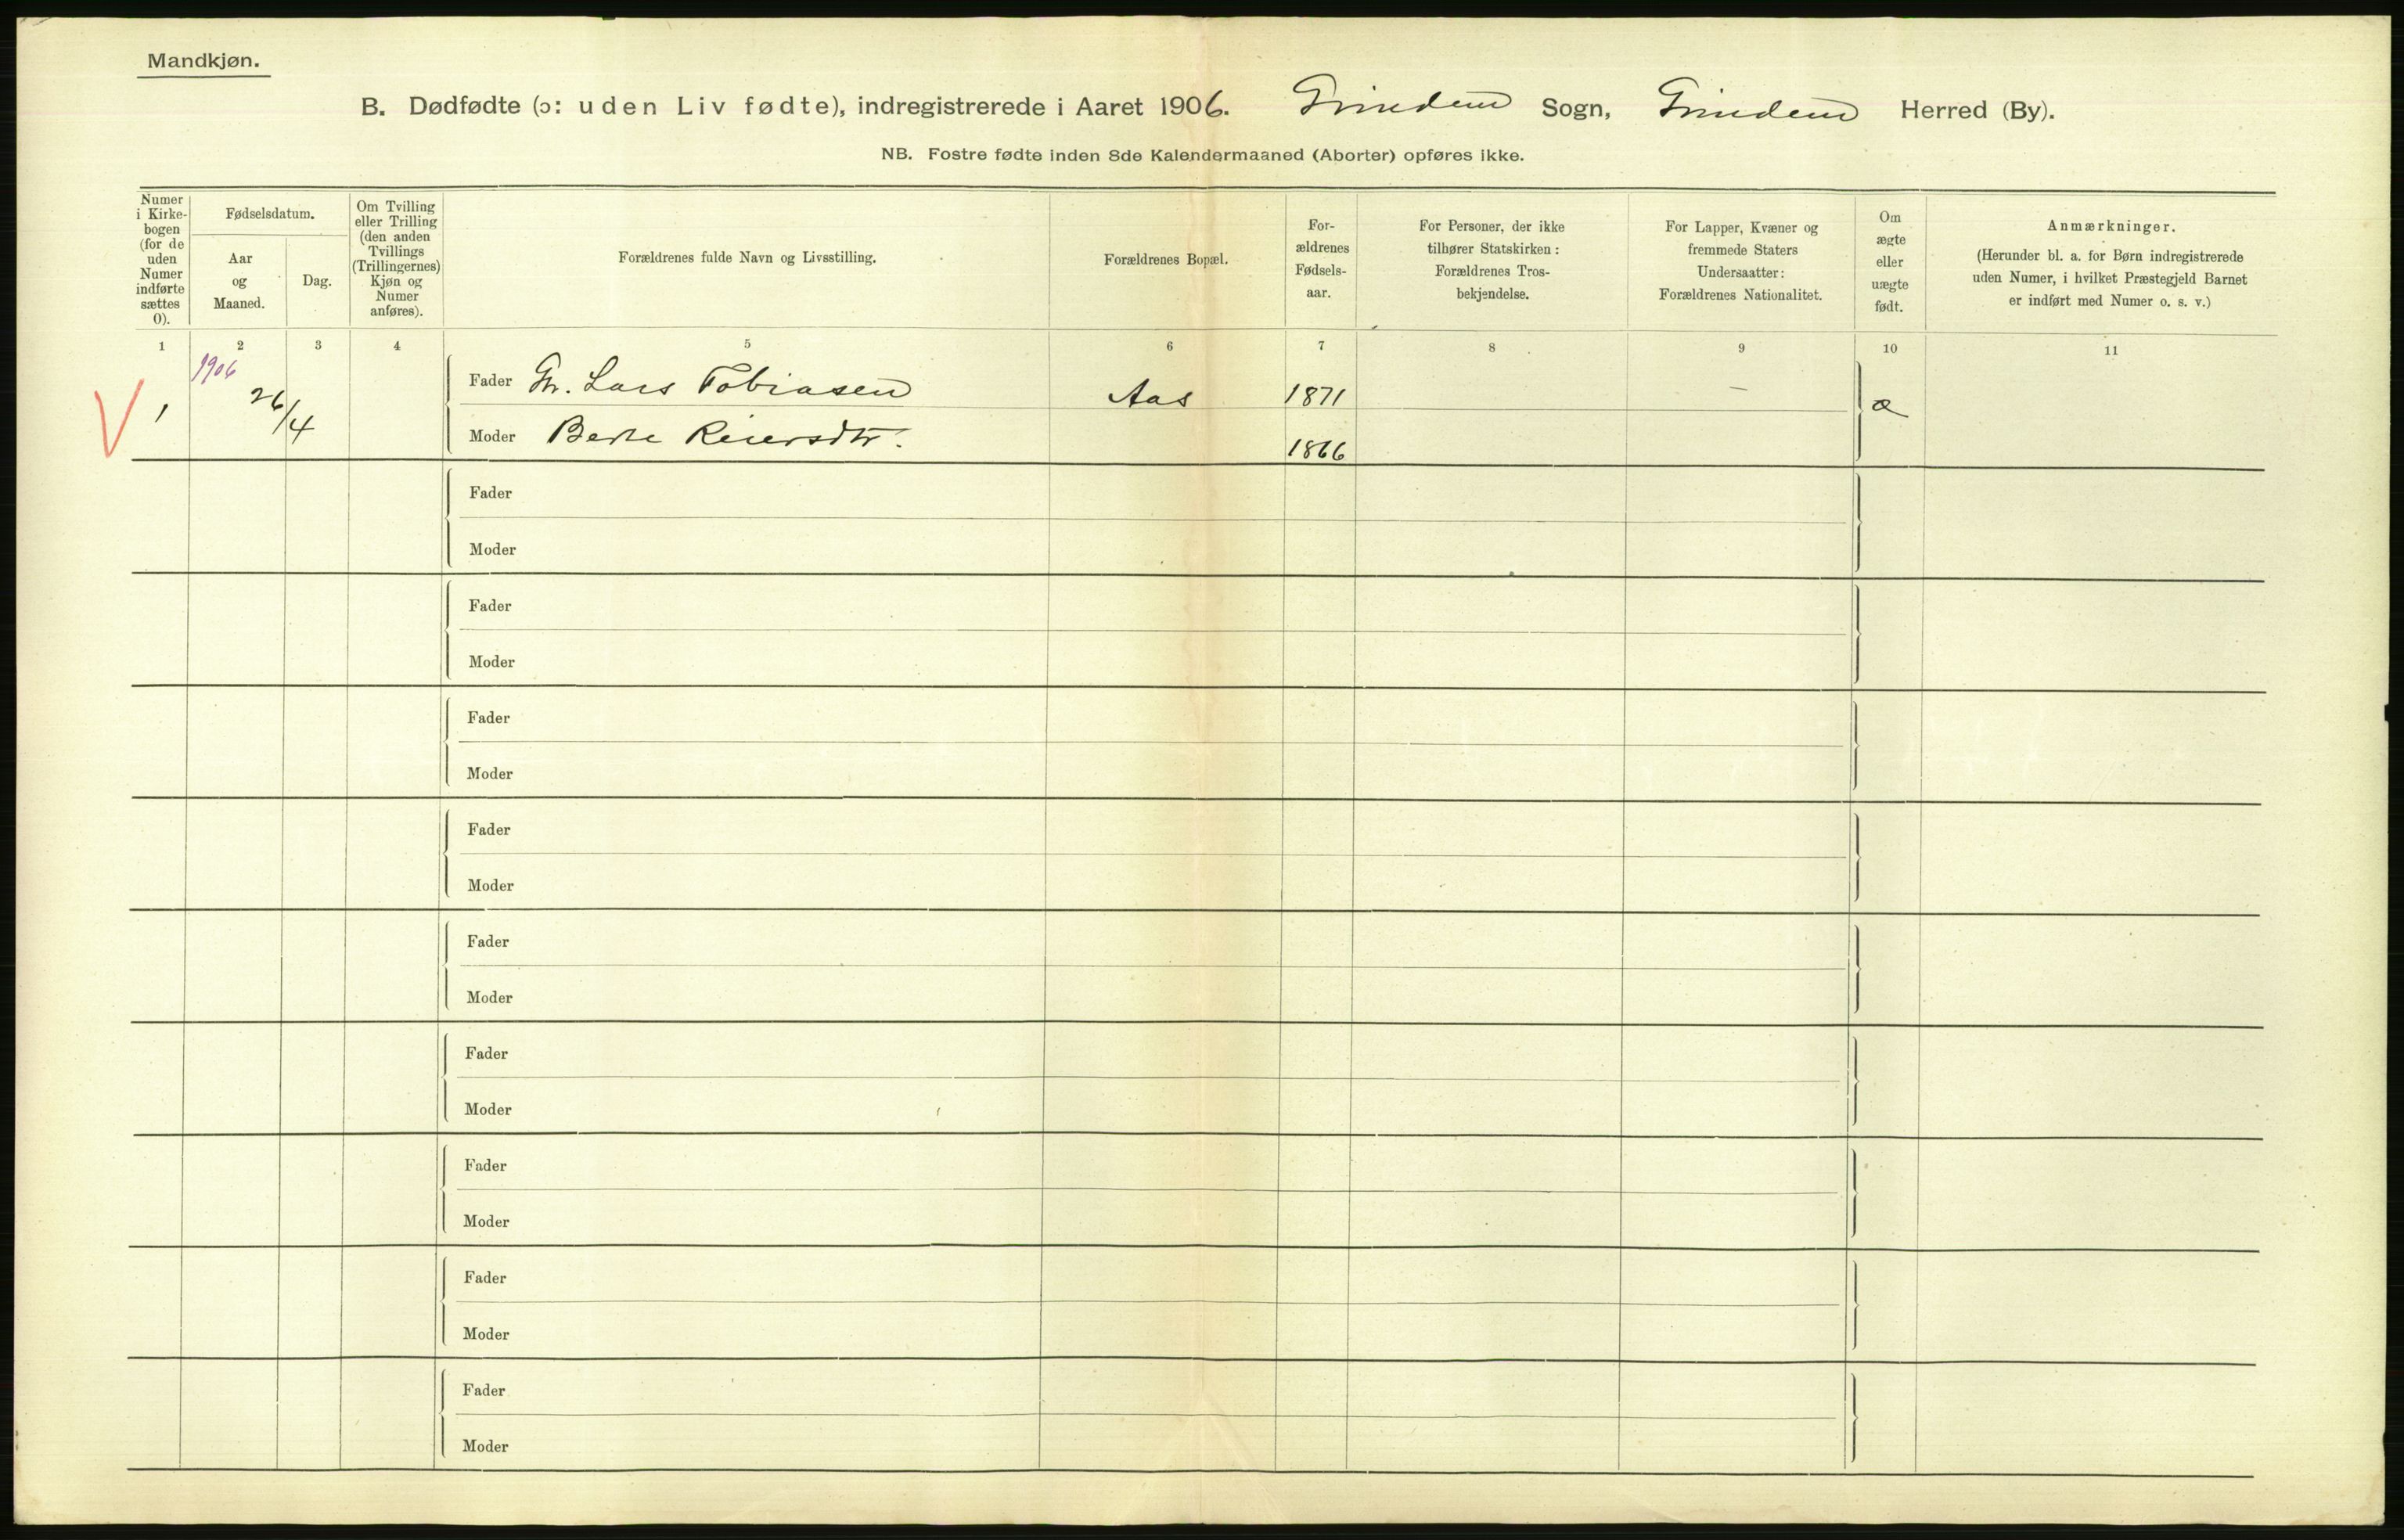 Mandkjøn.
B. Dødfødte (ɔ: uden Liv fødte), indregistrerede i Aaret 1906. Grindem Sogn, Grindem Herred (By).
NB. Fostre fødte inden 8de Kalendermaaned (Aborter) opføres ikke.
Numer
i Kirke-
bogen
(for de
uden
Numer
indførte
sættes
0).
Fødselsdatum.
Aar
og
Maaned.
Dag.
Om Tvilling
eller Trilling
(den anden
Tvillings
(Trillingernes)
Kjøn og
Numer
anføres).
Forældrenes fulde Navn og Livsstilling.
Forældrenes Bopæl.
For-
ældrenes
Fødsels-
aar.
For Personer, der ikke
tilhører Statskirken:
Forældrenes Tros-
bekjendelse.
For Lapper, Kvæner og
fremmede Staters
Undersaatter:
Forældrenes Nationalitet.
Om
ægte
eller
uægte
født.
Anmærkninger.
(Herunder bl. a. for Børn indregistrerede
uden Numer, i hvilket Præstegjeld Barnet
er indført med Numer o. s. v.)
1 2 3 4 5 6 7 8 9 10 11
1906
V 1 26/4 Fader Gr. Lars Tobiasen Aas 1871 — æ
Moder Berte Reiersdtr. 1866
Fader
Moder
Fader
Moder
Fader
Moder
Fader
Moder
Fader
Moder
Fader
Moder
Fader
Moder
Fader
Moder
Fader
Moder